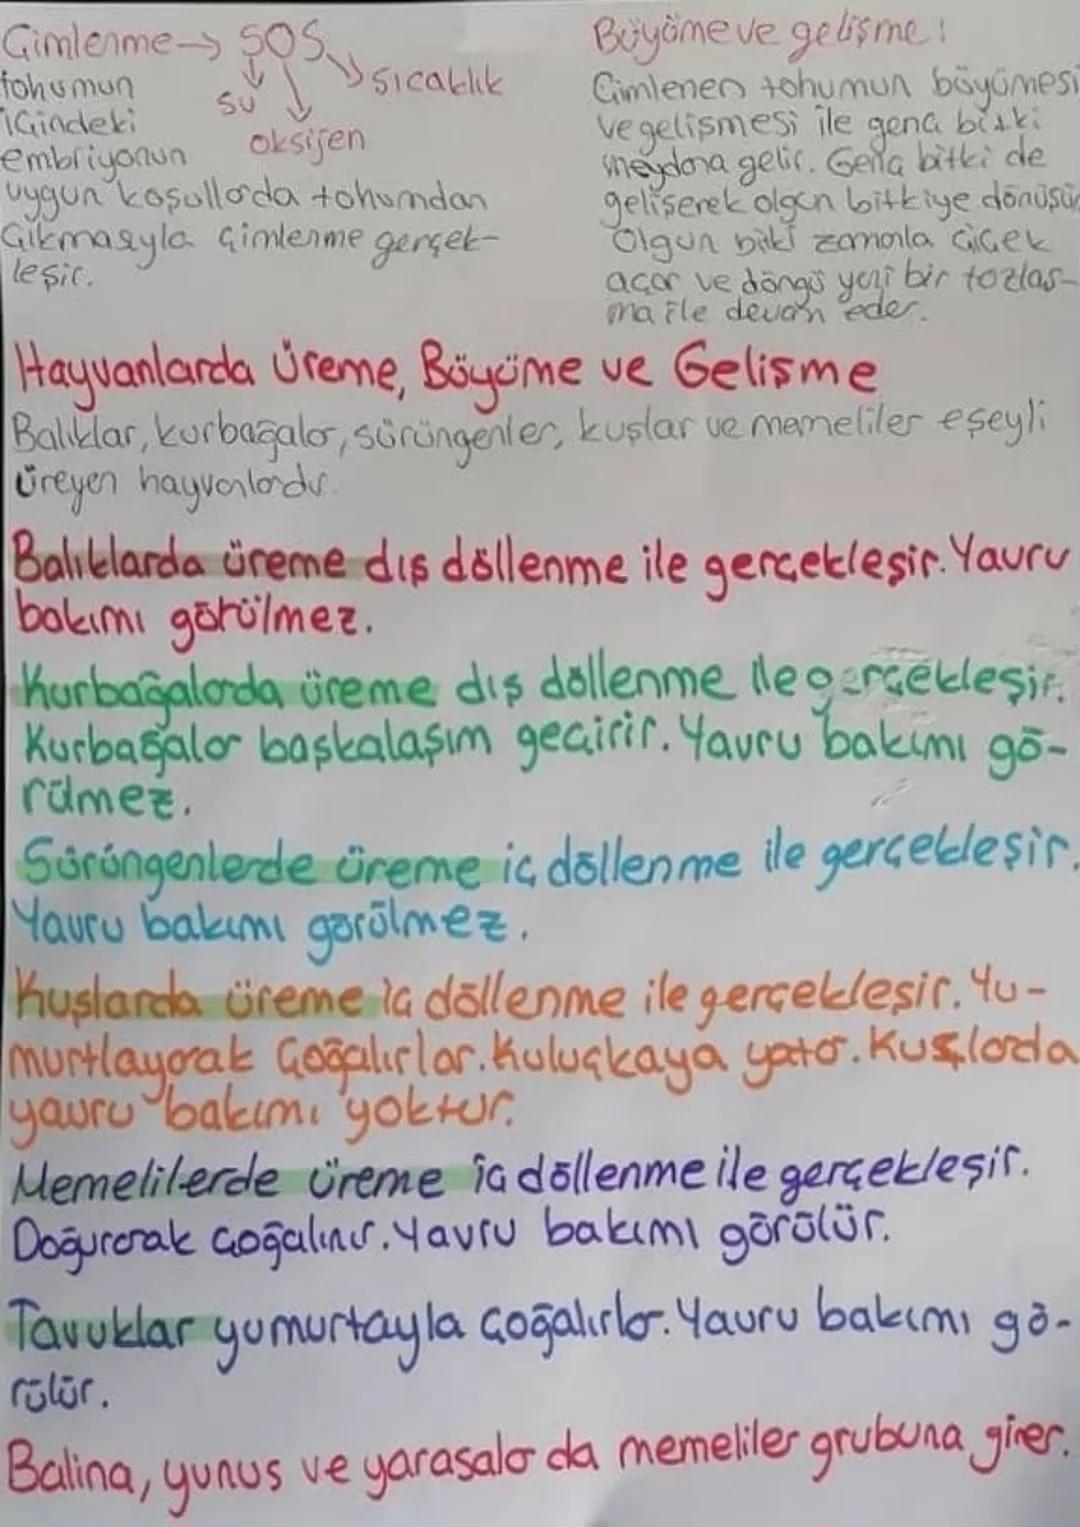 Çimlenme → SOS
Su
oksijen
Sıcaklık
tohumun
içindeki
embriyonun
uygun koşullarda tohumdan
çıkmasıyla çimlenme gerçek-
leşir.
Büyüme ve gelişme:
Çimlenen tohumun büyümesi
ve gelişmesi ile genç bitki
meydana gelir. Genç bitki de
gelişerek olgun bitkiye dönüşür
Olgun bitki zamanla çiçek
açar ve döngü yeni bir tozlaş-
ma ile devam eder.
Hayvanlarda Üreme, Büyüme ve Gelişme
Balıklar, kurbağalar, sürüngenler, kuşlar ve memeliler eşeyli
üreyen hayvanlardır.
Balıklarda üreme dış döllenme ile gerçekleşir. Yavru
bakımı görülmez.
Kurbağalarda üreme dış döllenme ile gerçekleşir.
Kurbağalar başkalaşım geçirir. Yavru bakımı gö-
rülmez.
Sürüngenlerde üreme iç döllenme ile gerçekleşir.
Yavru bakımı görülmez.
Kuşlarda üreme iç döllenme ile gerçekleşir. Yu-
murtlayarak çoğalırlar. Kuluçkaya yatar. Kuşlarda
yavru bakımı yoktur.
Memelilerde üreme iç döllenme ile gerçekleşir.
Doğurarak çoğalınır. Yavru bakımı görülür.
Tavuklar yumurtayla çoğalırlar. Yavru bakımı gö-
rülür.
Balina, yunus ve yarasalar da memeliler grubuna girer.